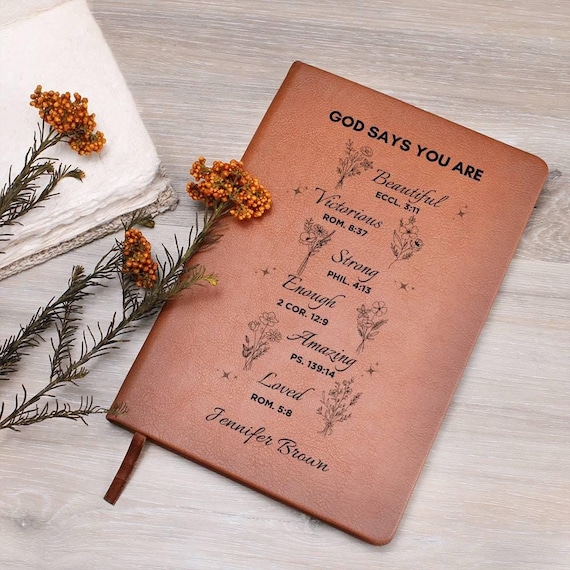 GOD SAYS YOU ARE
Beautiful
ECCL. 3:11
Victorious
ROM. 8:37
Strong
PHIL. 4:13
Enough
2 COR. 12:9
Amazing
PS. 139:14
Loved
ROM. 5:8
Jennifer Brown